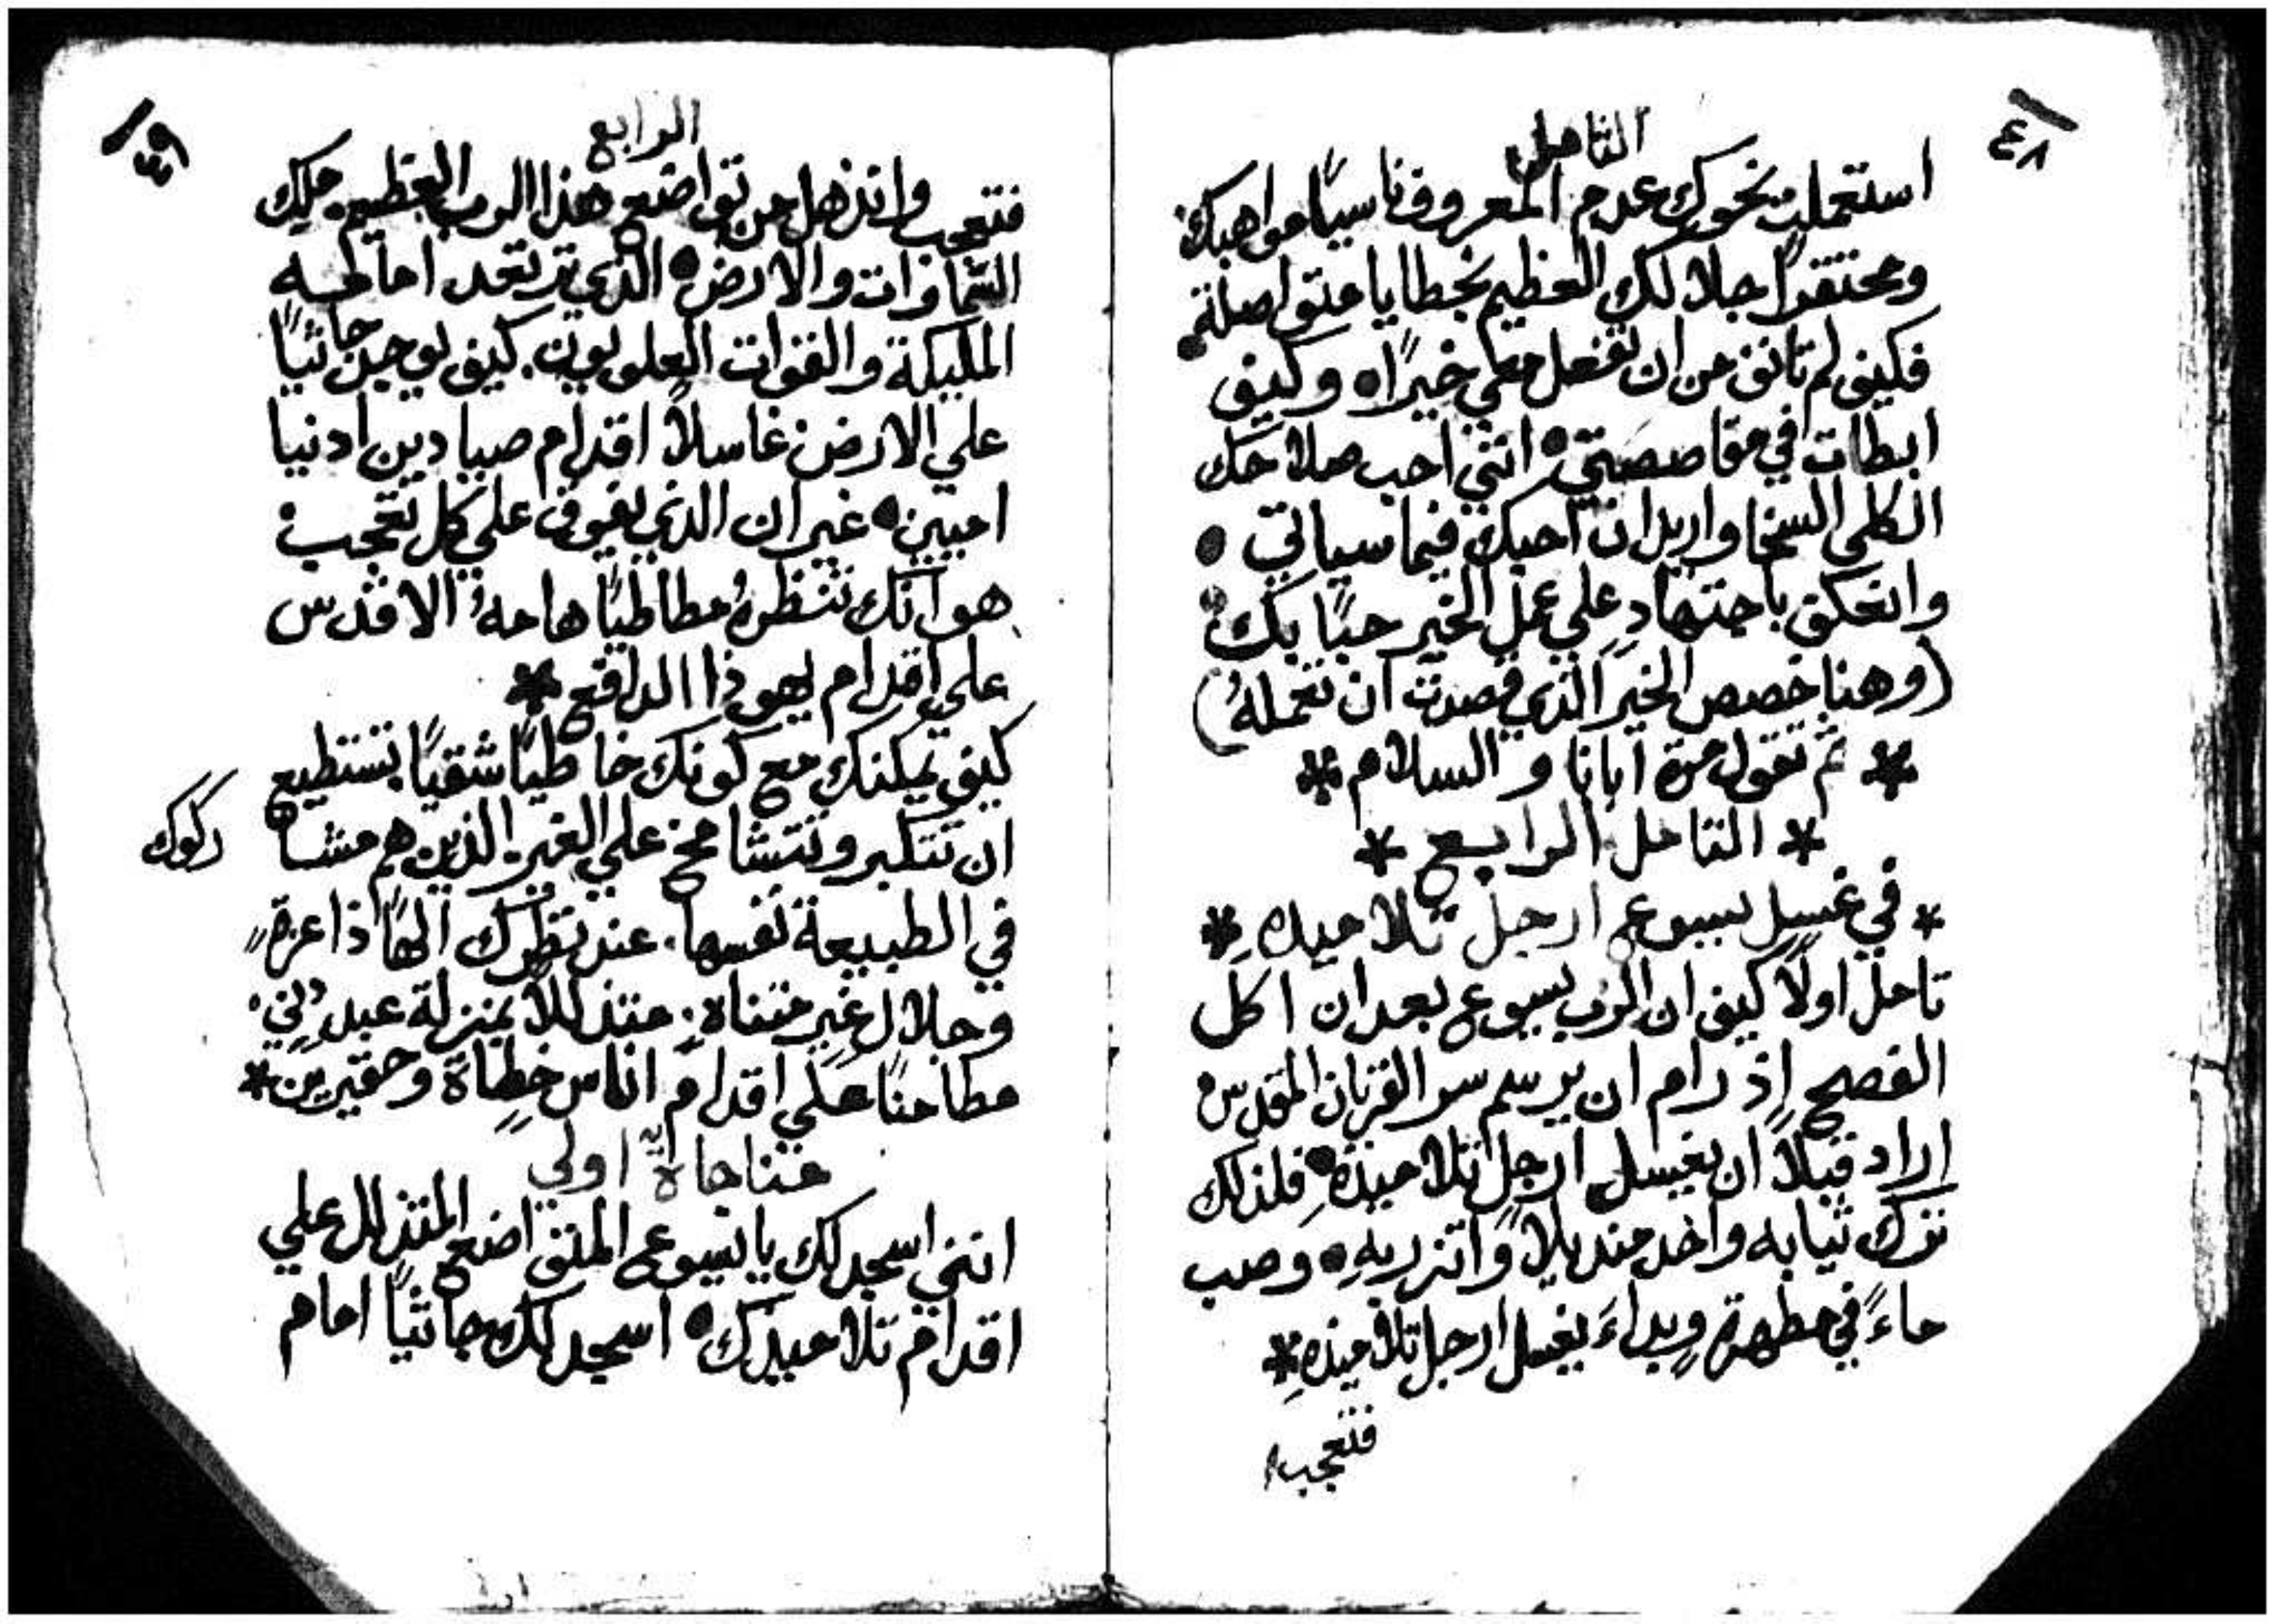 ٤٨
التامل
استعملت نحوك عدم المعروف ناسيًا مواهبك
ومحتقرًا جلالك العظيم بخطايا متواصلة
فكيف لم تانف من ان تفعل معي خيرًا ۰ وكيف
ابطات في مقاصصتي ۰ انني احب صلاحك
الكلي السخا واريد ان احبك فيما سياتي ۰
واتعكف باجتهادٍ علي عمل الخير حبًا بك
(وهنا خصص الخير الذي قصدت ان تعملهُ)
* ثم تقول مرة ابانا والسلام *
* التامل الرابع *
* في غسل يسوع ارجل تلاميذه *
تامل اولًا كيف ان الرب يسوع بعد ان اكل
الفصح إذ رام ان يرسم سر القربان المقدس
اراد قبلًا ان يغسل ارجل تلاميذهِ ۰ فلذلك
ترك ثيابه واخد منديلًا واتزر بهِ ۰ وصب
ماءً في مطهرة وبداءَ يغسل ارجل تلاميذهِ *
فتعجب
٤٩
الرابع
فتعجب وانذهل من تواضع هذا الرب العظيم. ملك
السماوات والارض ۰ الذي ترتعد امامه
المليكة والقوات العلويون. كيف يوجد جاثيًا
علي الارض غاسلًا اقدام صيادين ادنيا
اميين ۰ غير ان الذي يفوق علي كل تعجب
هو انك تنظرهُ مطاطيًا هامهُ الاقدس
علي اقدام يهوذا الدافع *
كيف يمكنك مع كونك خاطيًا شقيًا تستطيع
ان تتكبر وتتشامخ علي الغير الذين هم مشا
ركوك
في الطبيعة نفسها. عند نظرك الهًا ذا عزةٍ
وجلال غير متناهٍ. متذللًا بمنزلة عبدٍ دني
مطامنًا علي اقدام اناس خطاة وحقيرين *
مناجاة اولي
انني اسجد لك يا يسوع المتواضع المتذلل علي
اقدام تلاميذك ۰ اسجد لك جاثيًا امام